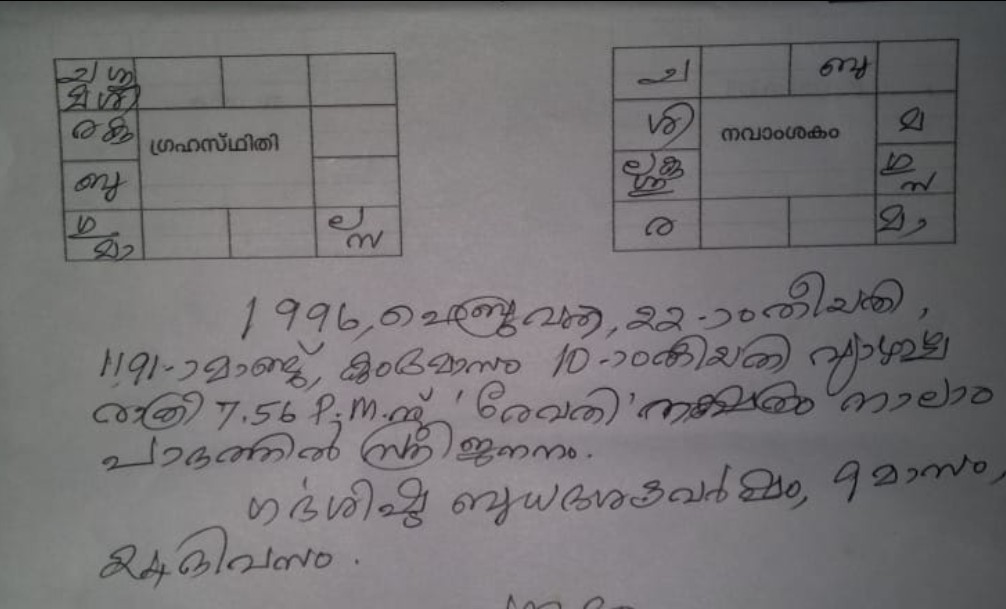 ച ശു
മ ശി
ര കു
ഗ്രഹസ്ഥിതി
ബു
ഗു
മാ
ല
സ
ച
ബു
ശി
നവാംശകം
മ
ല കു
ശു
ഗു
സ
ര
മാ
1996, ഫെബ്രുവരി, 22-ാം തീയതി,
1191-ാമാണ്ട്, കുംഭമാസം 10-ാം തിയതി വ്യാഴാഴ്ച
രാത്രി 7.56 P.M.ന് 'രേവതി' നക്ഷത്രം നാലാം
പാദത്തിൽ സ്ത്രീ ജനനം.
ഗർഭശിഷ്ട ബുധദശ 3 വർഷം, 9 മാസം,
24 ദിവസം.